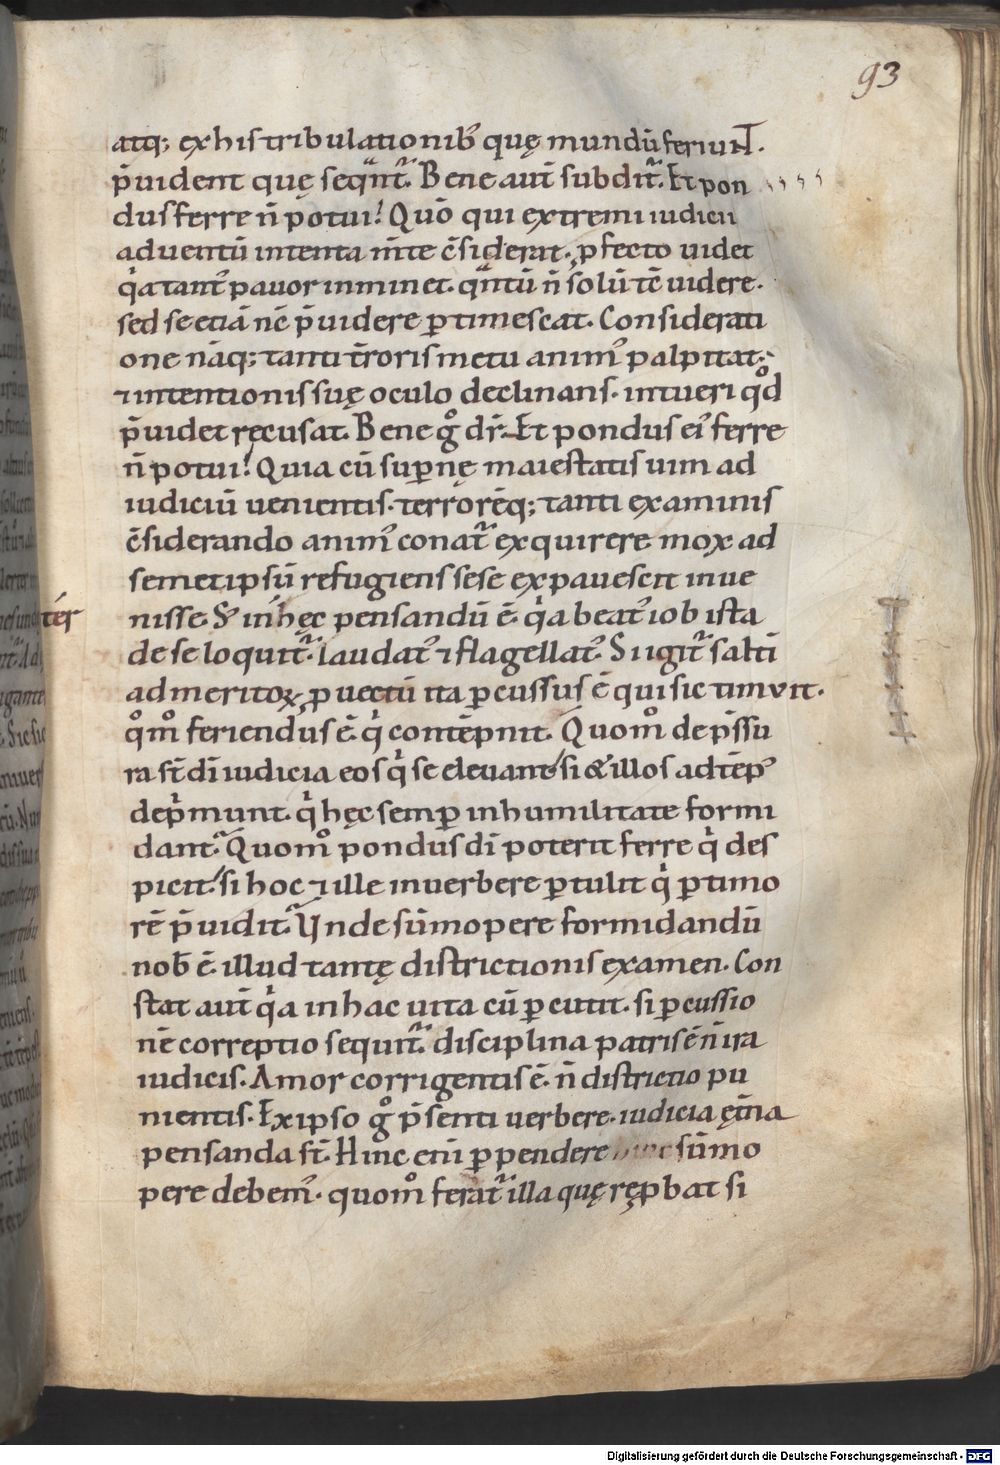 93
atq; ex his tribulationib' quę mundū feriunt.
p̄uident quę seqn̄t̄. Bene aut̄ subdit̄. Et pon
dus ferre n̄ potui! Quō qui extremi iudicii
aduentū intenta m̄te c̄siderat. p̱fecto uidet
q̇a tant' pauor imminet. qn̄tū n̄ solū tc̄ uidere.
sed se etiā nc̄ p̄uidere p̱timescat. Considerati
one nāq; tanti t̄roris metu anim' palpitat.
⁊ intentionis suę oculo declinans. intueri qͦd
p̄uidet recusat. Bene gͦ dr̄. Et pondus ei' ferre
n̄ potui! Quia cū sup̱nę maiestatis uim ad
iudiciū uenientis. terrorēq; tanti examinis
c̄siderando anim' conat̄ exquirere mox ad
semetipsū refugiens sese expauescit inue
nisse. S; in hęc pensandū ē. q̇a beat' iob ista
de se loquit̄. laudat' ⁊ flagellat'. Si igit̄ saltī
ad meritoꝝ p̱uectū ita p̱cussus ē qui sic timuit.
qͦmͦ feriendus ē. q̇ contēpnit. Quomͦ de p̄ssu
ra st̄ dī iudicia eos q̇ se eleuant. si & illos ad tēp'
dep̄munt. q̇ hęc semp̱ in humilitate formi
dant. Quomͦ pondus dī poterit ferre q̇ des
picit. si hoc ⁊ ille in uerbere p̱tulit q̇ p̱ timo
rē p̄uidit. Unde sūmopere formidandū
nob̄ ē. illud tantę districtionis examen. Con
stat aut̄ q̇a in hac uita cū p̱cutit. si p̱cussio
nē correptio sequit̄. disciplina patris ē n̄ ira
iudicis. Amor corrigentis ē. n̄ districtio pu
nientis. Ex ipso gͦ p̄senti uerbere. iudicia ęt̄na
pensanda st̄. Hinc enī p̱pendere sūmo
pere debem'. quomͦ ferat̄ illa quę rep̱bat si
Digitalisierung gefördert durch die Deutsche Forschungsgemeinschaft - DFG